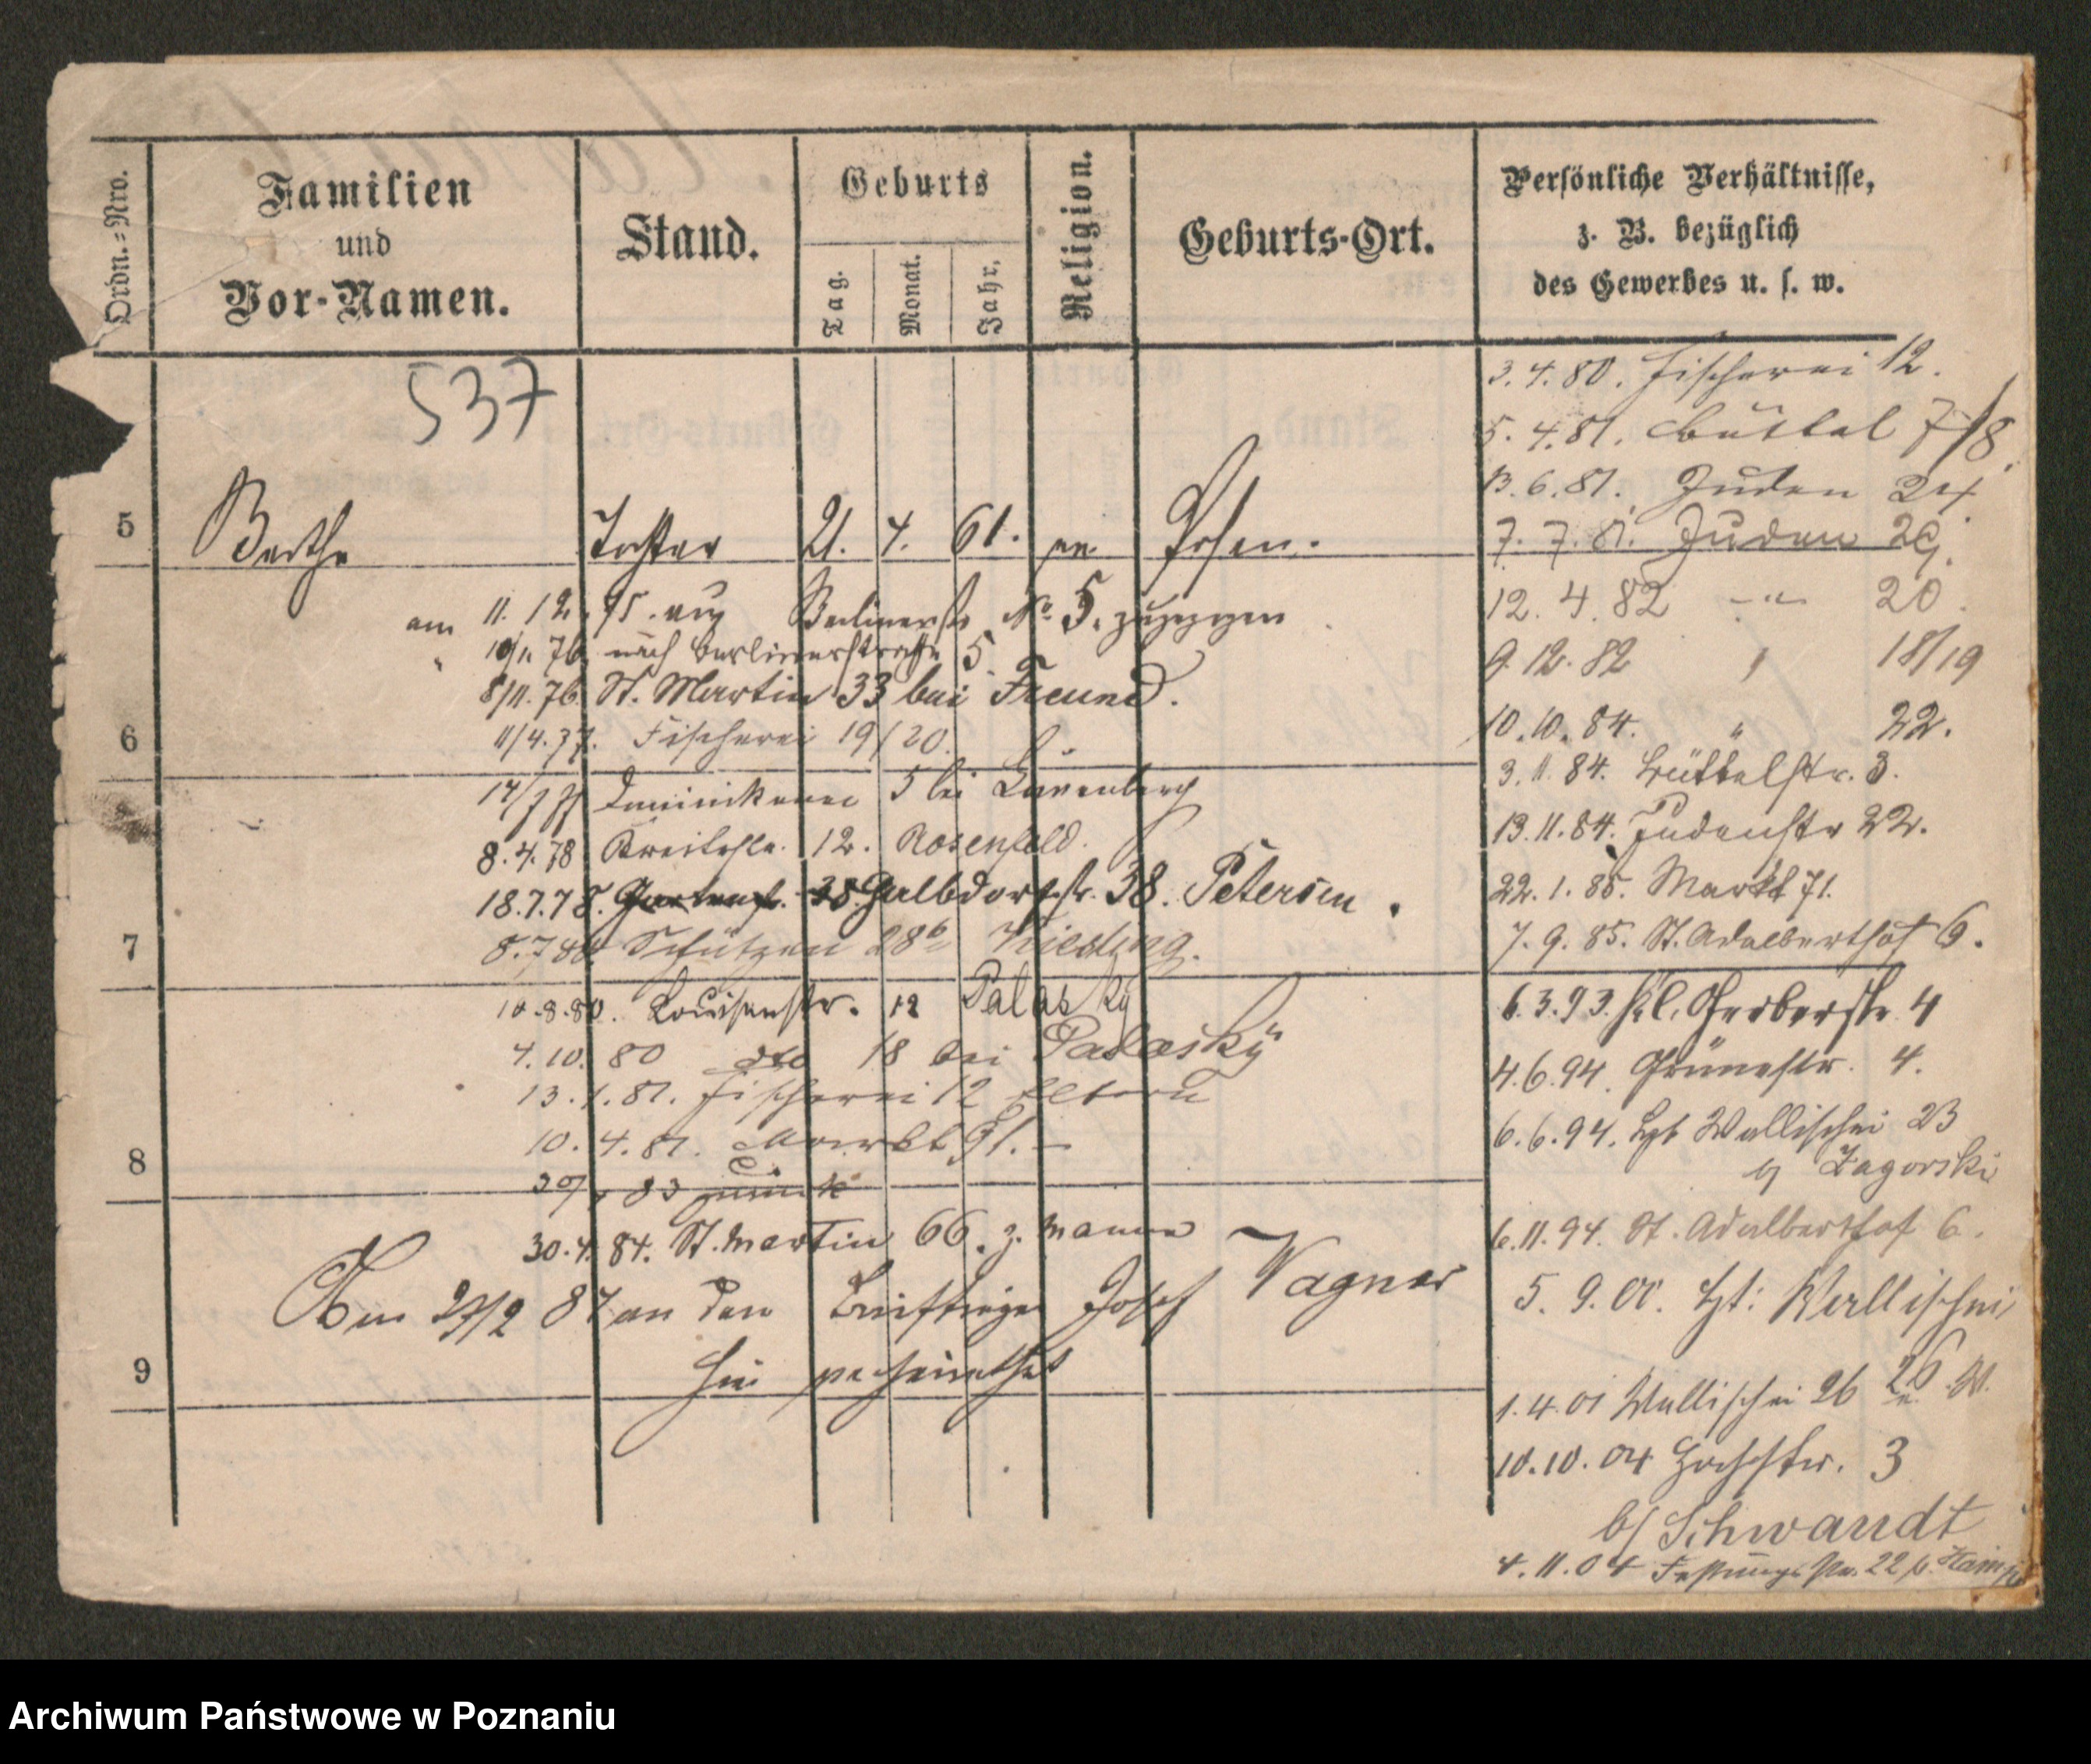 Ordn.-Nro.
Familien
und
Vor-Namen.
Stand.
Geburts
Tag.
Monat.
Jahr.
Religion.
Geburts-Ort.
Persönliche Verhältnisse,
z. B. bezüglich
des Gewerbes u. s. w.
537
5 Berthe Tochter 21. 4. 61. ev Posen.
am 11. 12. 75. aus Berlinerstr No 5. zugezogen
" 10/1. 76. nach Berlinerstraße 5.
8/11. 76. St. Martin 33 bei Freund.
6
11/4. 77. Fischerei 19/20.
Dominikaner 5 bei
8. 4. 78 Breitestr. 12. Rosenfeld.
18. 7. 78. 38. Halbdorfstr. 38. Petersen.
7
Schützen 28b
10. 8. 80. Louisenstr. 12 Palasky
4. 10. 80 dto 18 bei Palasky
13. 1. 81. Fischerei 12 Eltern
10. 4. 81. Markt 91. –
8
83 zurück
30. 4. 84. St. Martin 66.
Am 87 an den Briefträger Josef Wagner
9
hier verheirathet
3. 4. 80. Fischerei 12.
5. 4. 81. Büttel 7/8.
13. 6. 81. Juden 24.
7. 7. 81. Juden 29.
12. 4. 82 -"- 20.
9. 12. 82 " 18/19
10. 10. 84. " 22.
3. 11. 84. Büttelstr. 3.
13. 11. 84. Judenstr 22.
22. 1. 85. Markt 71.
7. 9. 85. St. Adalberthof 6.
6. 3. 93. Kl. Gerberstr 4
4. 6. 94. Grünestr. 4.
6. 6. 94. Wallischei 23
b/ Zagorski
6. 11. 94. St. Adalberthof 6.
5. 9. 00. Wallischei
26
1. 4. 01 Wallischei 26
10. 10. 04 3
b/ Schwandt
4. 11. 04 Festungsstr. 22
Archiwum Państwowe w Poznaniu